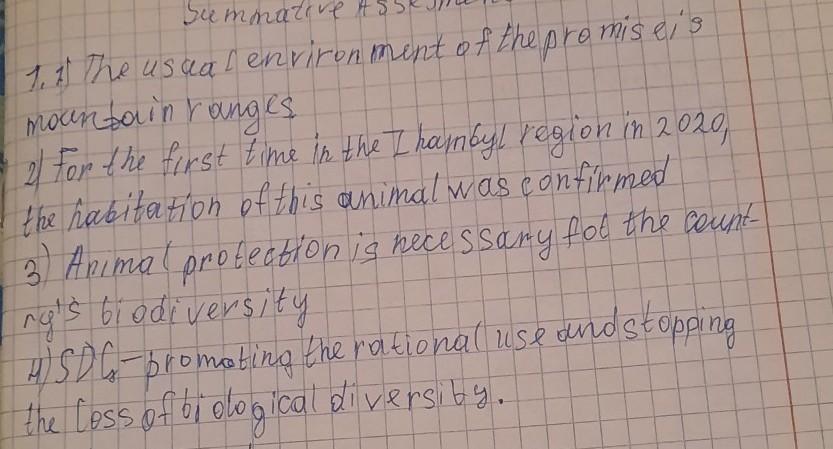 Summative Assessment
1. 1) The usual environment of the promise is
mountain ranges
2) For the first time in the Zhambyl region in 2020,
the habitation of this animal was confirmed
3) Animal protection is necessary fot the count-
ry's biodiversity
4) SDG-promoting the rational use and stopping
the loss of biological diversity.